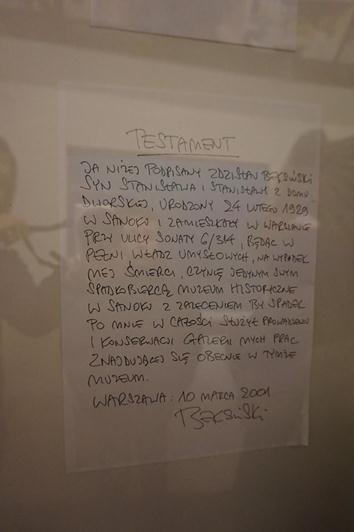 TESTAMENT
JA NIŻEJ PODPISANY ZDZISŁAW BEKSIŃSKI
SYN STANISŁAWA I STANISŁAWY Z DOMU
DWORSKIEJ, URODZONY 24 LUTEGO 1929
W SANOKU I ZAMIESZKAŁY W WARSZAWIE
PRZY ULICY SONATY 6/314, BĘDĄC W
PEŁNI WŁADZ UMYSŁOWYCH, NA WYPADEK
MEJ ŚMIERCI, CZYNIĘ JEDYNYM SWYM
SPADKOBIERCĄ MUZEUM HISTORYCZNE
W SANOKU Z ZALECENIEM BY SPADEK
PO MNIE W CAŁOŚCI SŁUŻYŁ PROWADZENIU
I KONSERWACJI GALERII MYCH PRAC
ZNAJDUJĄCEJ SIĘ OBECNIE W TYMŻE
MUZEUM.
WARSZAWA: 10 MARCA 2001
BEKSIŃSKI